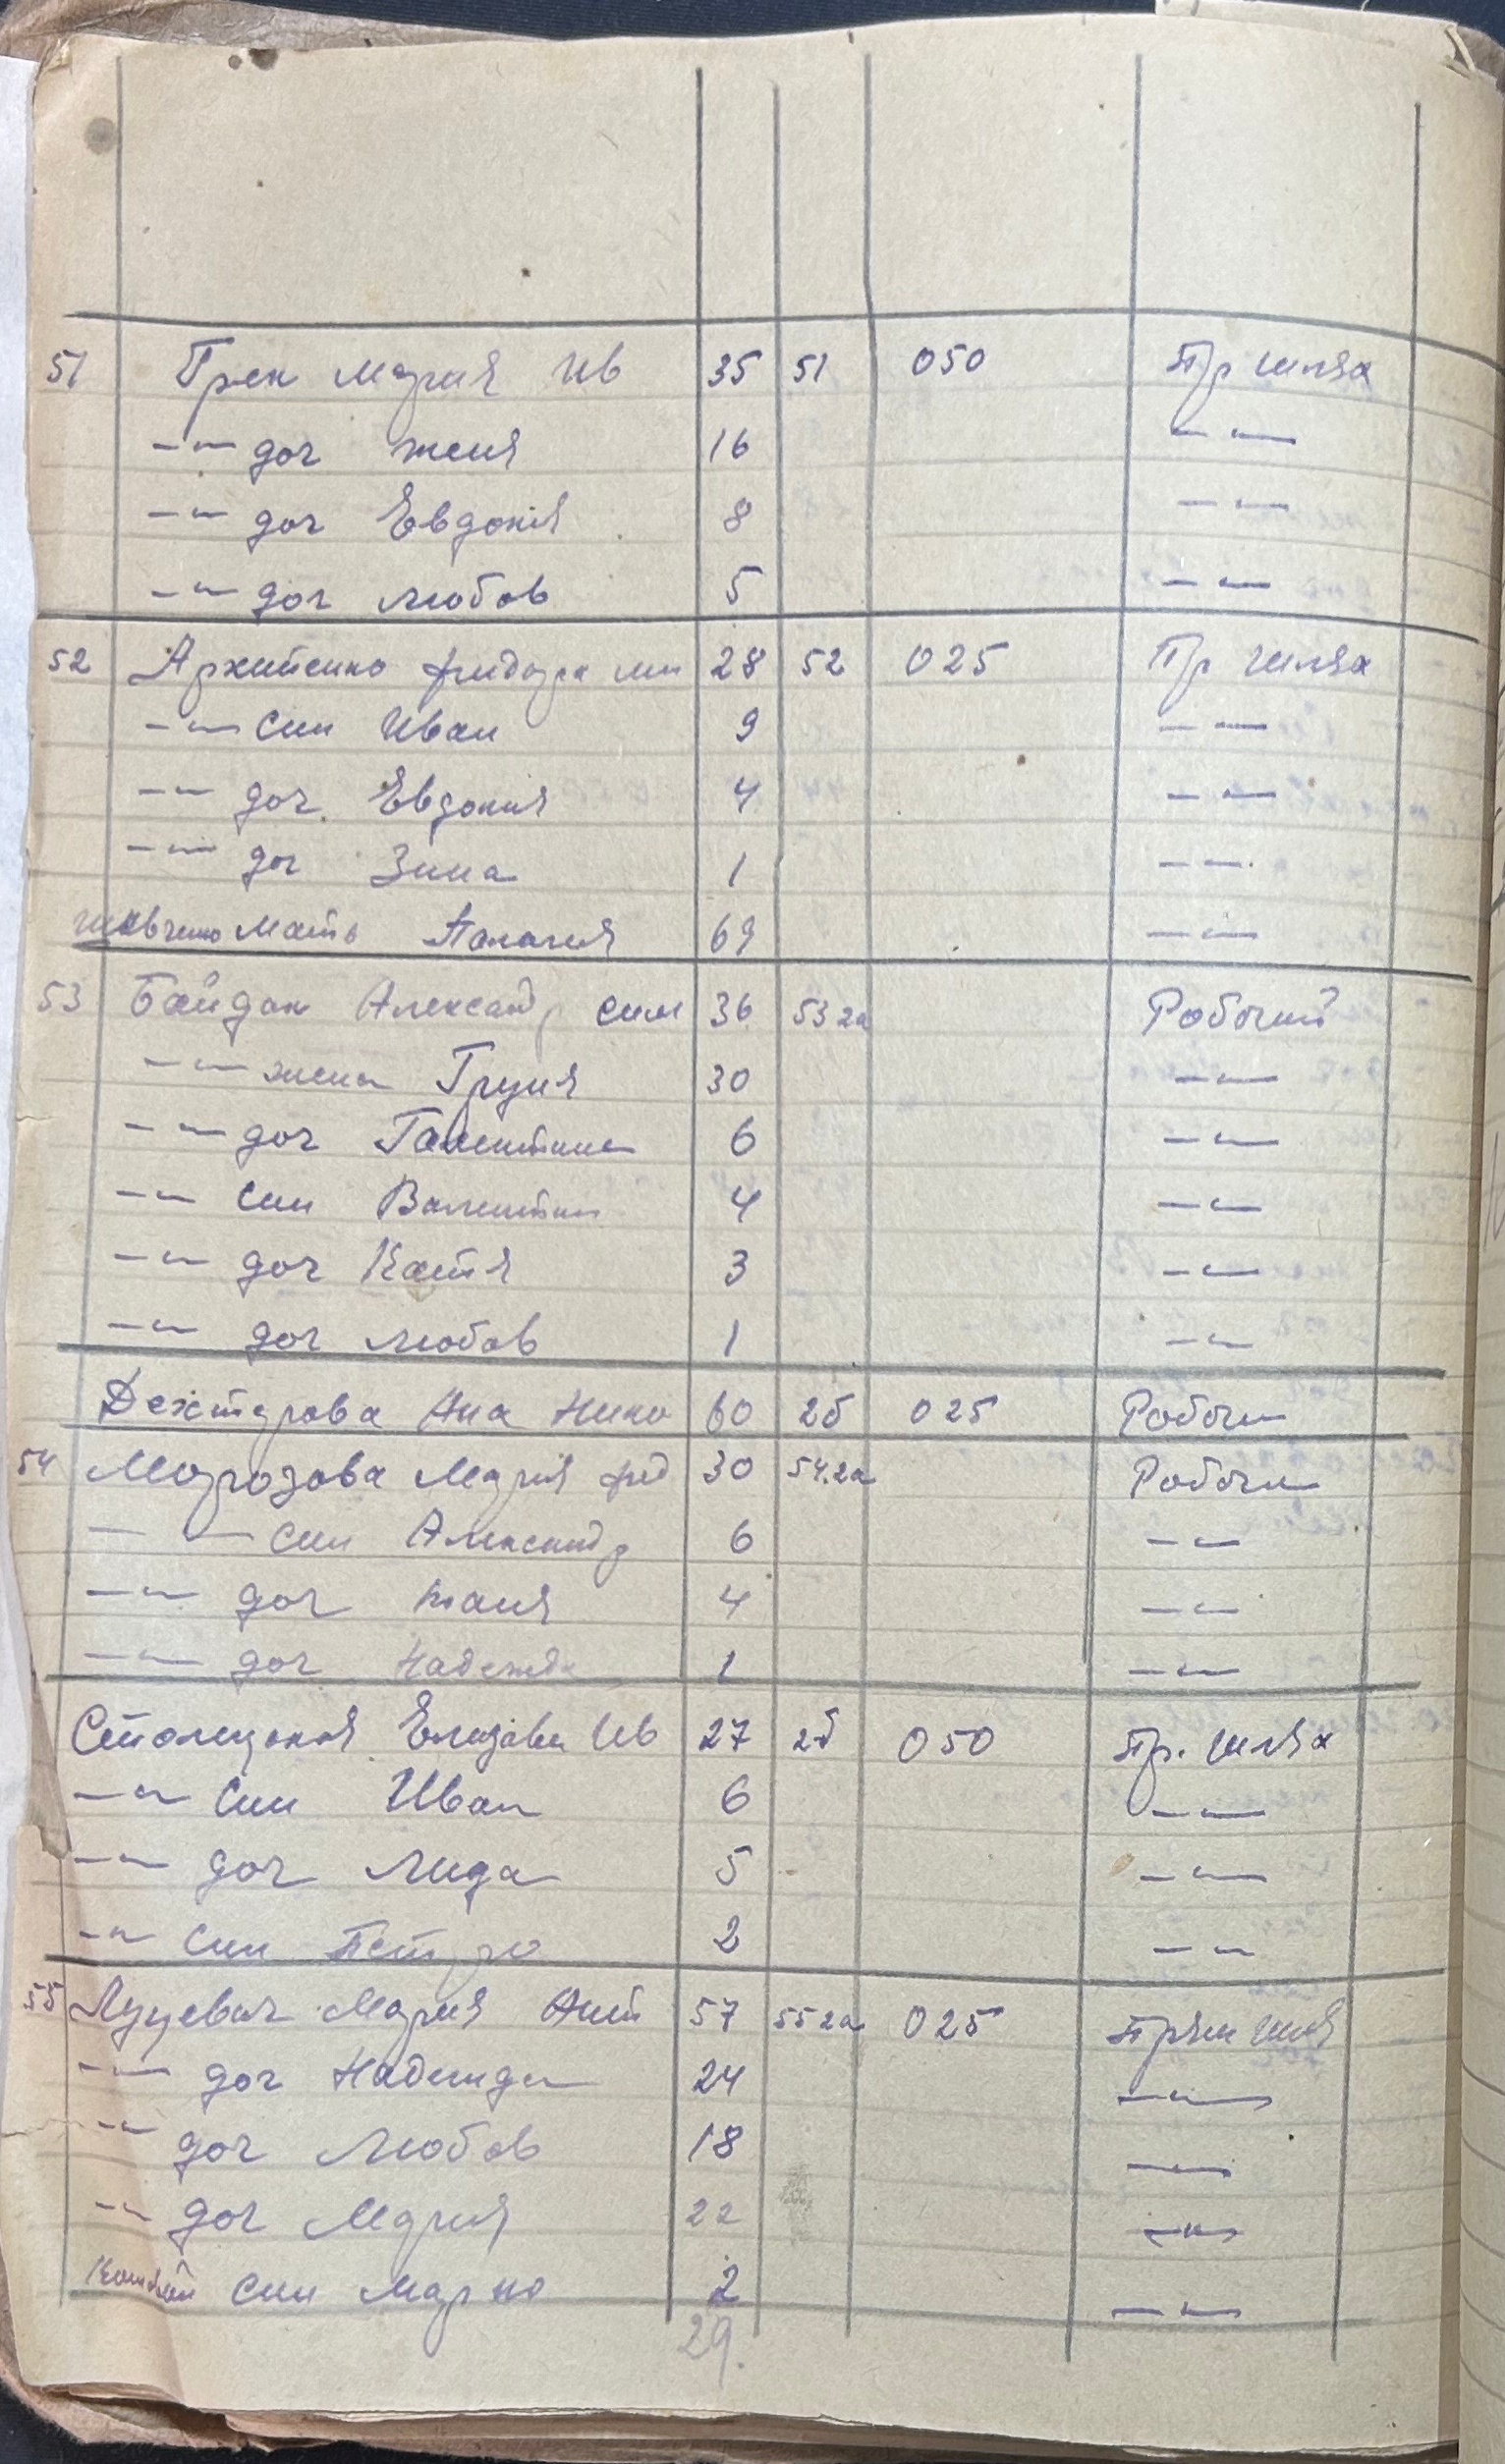 51 Грек Мария Ив 35 51 050 Пр шляха
-"- доч женя 16 -"-
-"- доч Евдокія 8 -"-
-"- доч любов 5 -"-
52 Архипенко 28 52 025 Пр шляха
-"- син Иван 9 -"-
-"- доч. Евдокия 4 -"-
-"- доч Зина 1 -"-
шевченко мать Палагия 69 -"-
53 Байдак Александр сим 36 53 2а Робочий
-"- жена Груня 30 -"-
-"- доч 6 -"-
-"- син Валентин 4 -"-
-"- доч Катя 3 -"-
-"- доч любов 1 -"-
Дехтярова Ана Нико 60 2б 025 Робочи
54 Морозова Мария фед 30 54.2а Робочи
-"- син Александр 6 -"-
-"- доч таня 4 -"-
-"- доч Надежда 1 -"-
Елизавета Ив 27 2б 050 Пр. шляха
-"- син Иван 6 -"-
-"- доч Лида 5 -"-
-"- син Петро 2 -"-
55 Луцевич Мария Ант 57 55 2а 025
-"- доч Надежда 24 -"-
-"- доч Любов 18 -"-
-"- доч Мария 22 -"-
син Марко 2 -"-
29.